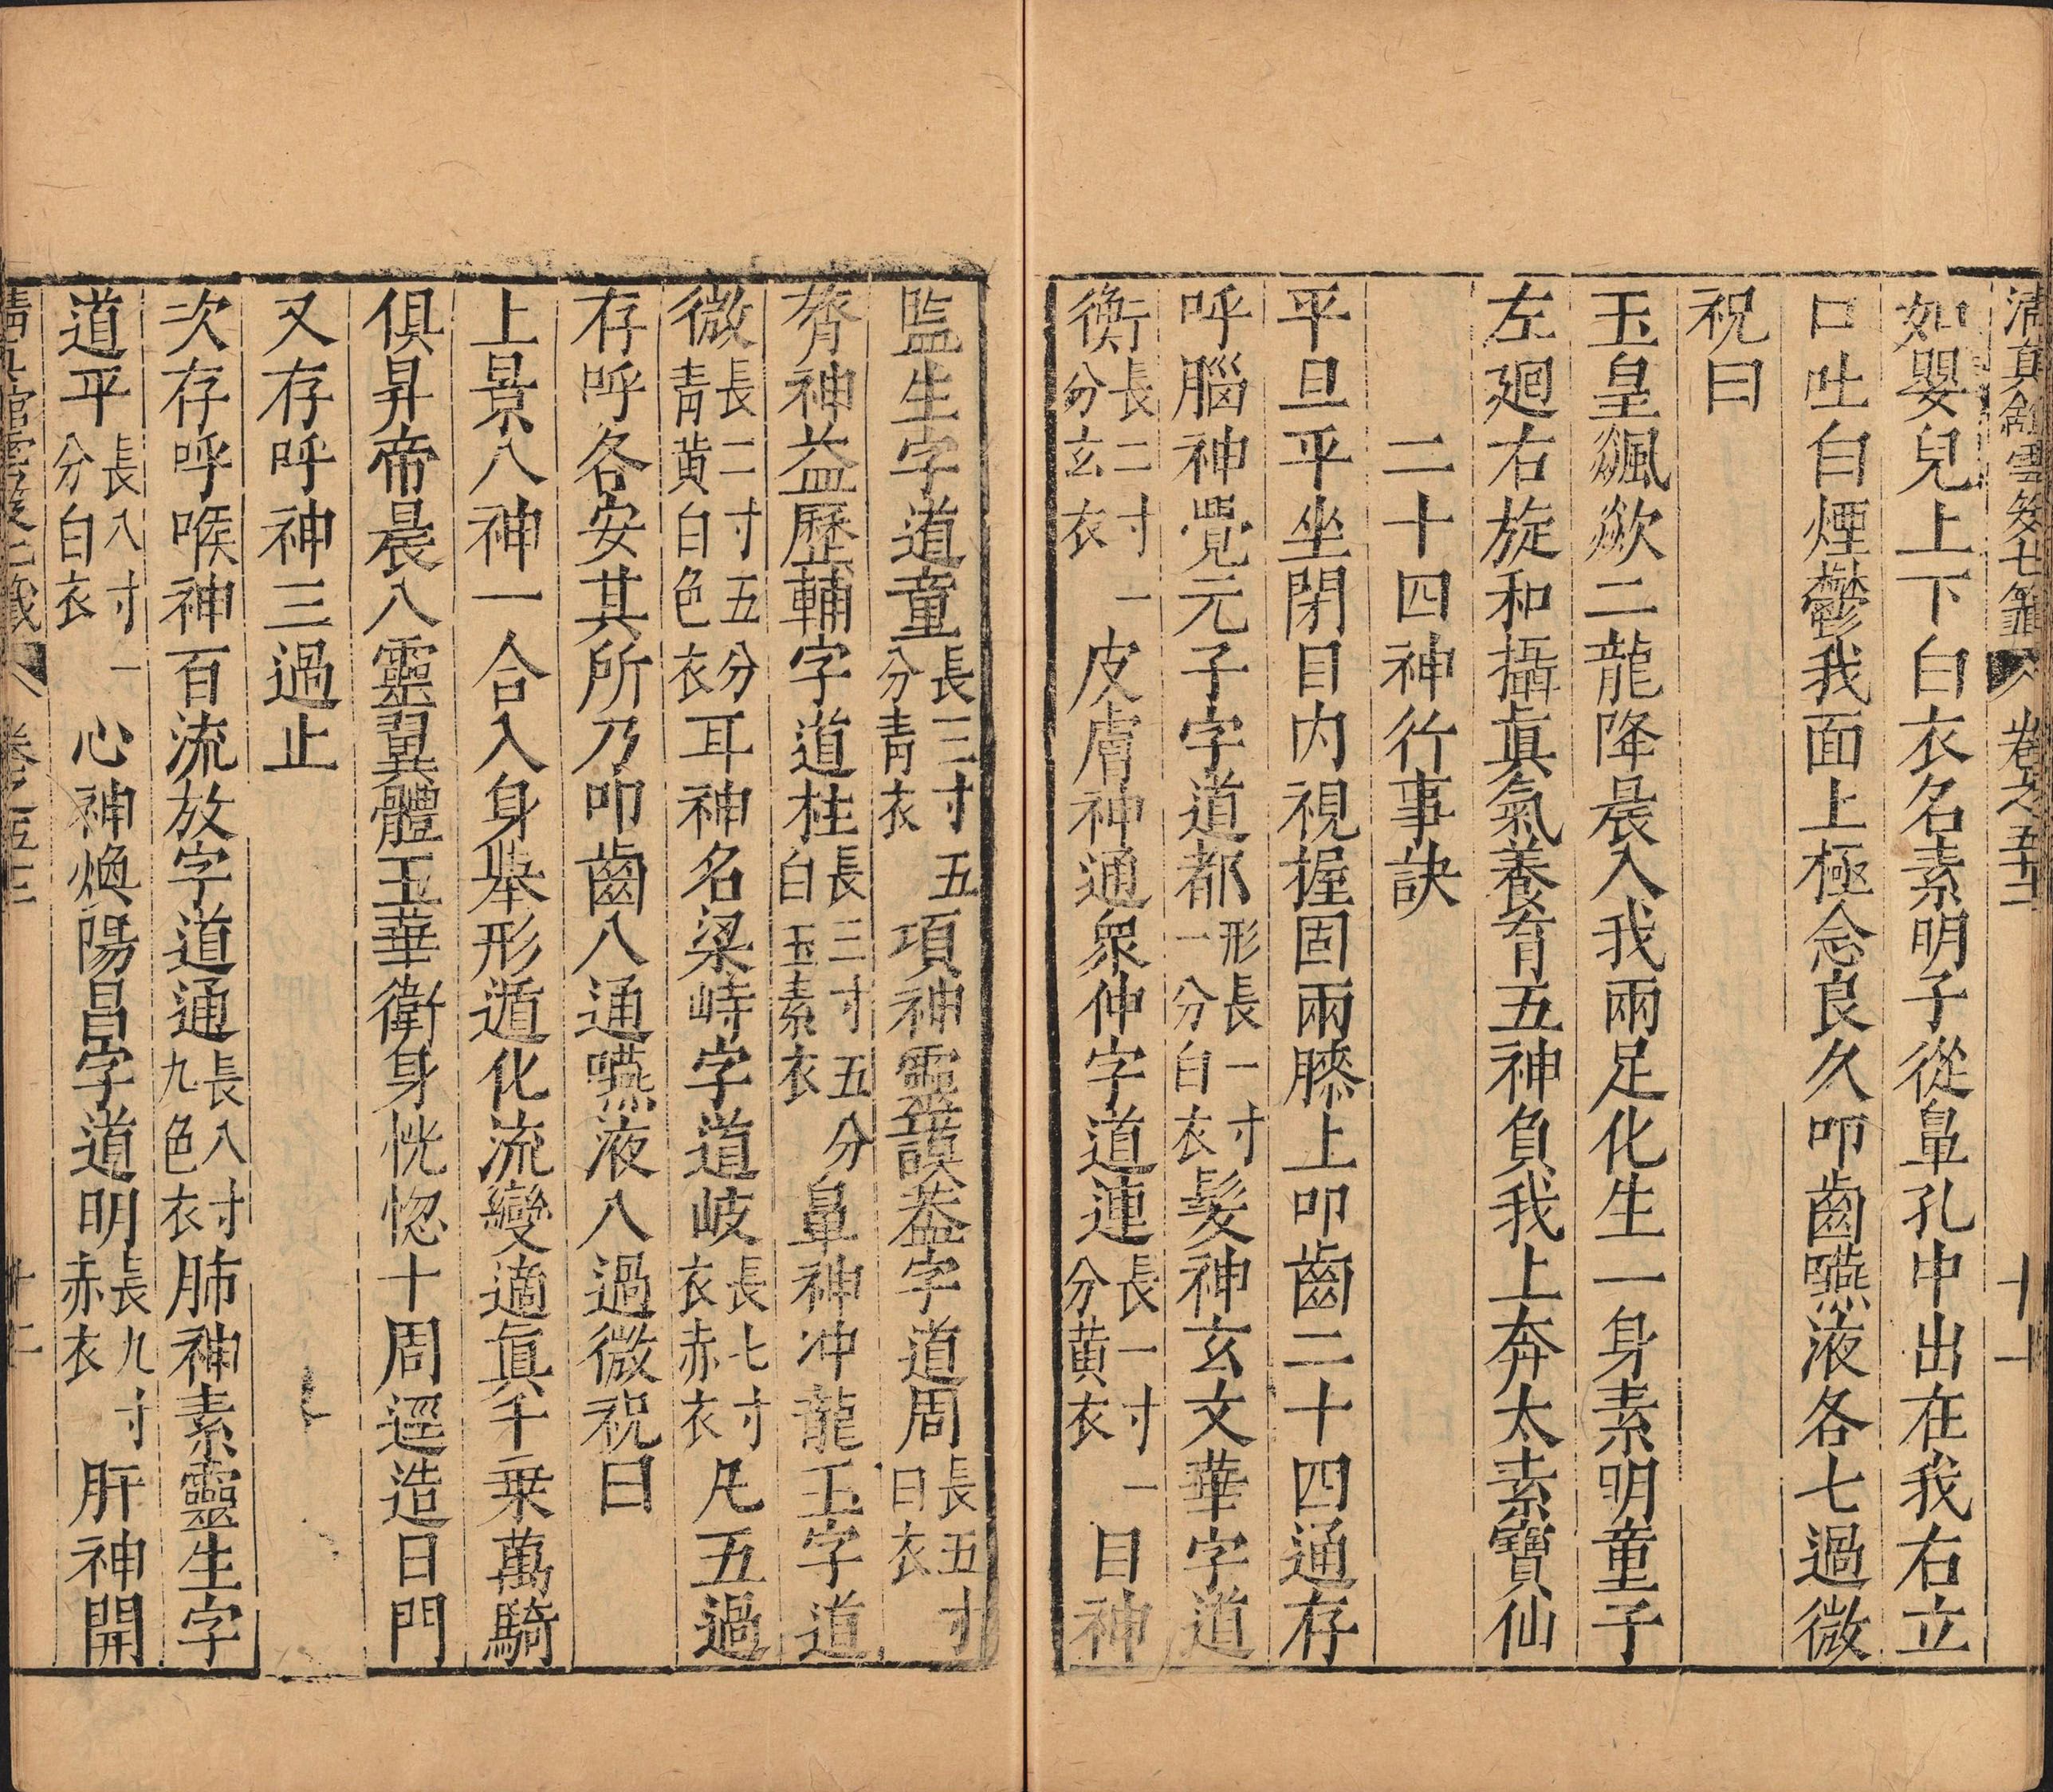 清真館雲笈七籤 卷之五十二 十一
如嬰兒上下白衣名素明子從鼻孔中出在我右立
口吐白煙鬱我面上極念良久叩齒嚥液各七過微
祝曰
玉皇飇歘二龍降晨入我兩足化生一身素明童子
左廻右旋和攝眞氣養育五神負我上奔太素寶仙
二十四神行事訣
平旦平坐閉目內視握固兩膝上叩齒二十四通存
呼腦神覺元子字道都形長一寸一分白衣髮神玄文華字道
衡長二寸一分玄衣皮膚神通衆仲字道連長一寸一分黃衣目神
監生字道童長三寸五分靑衣項神靈謨葢字道周長五寸白衣
膂神益歷輔字道柱長三寸五分白玉素衣鼻神冲龍玉字道
微長二寸五分靑黃白色衣耳神名梁峙字道岐長七寸衣赤衣凡五過
存呼各安其所乃叩齒八通嚥液八過微祝曰
上景八神一合入身舉形遁化流變適眞千乗萬騎
俱昇帝晨八靈翼體玉華衛身恍惚十周逕造日門
又存呼神三過止
次存呼喉神百流放字道通長八寸九色衣肺神素靈生字
道平長八寸一分白衣心神煥陽昌字道明長九寸赤衣肝神開